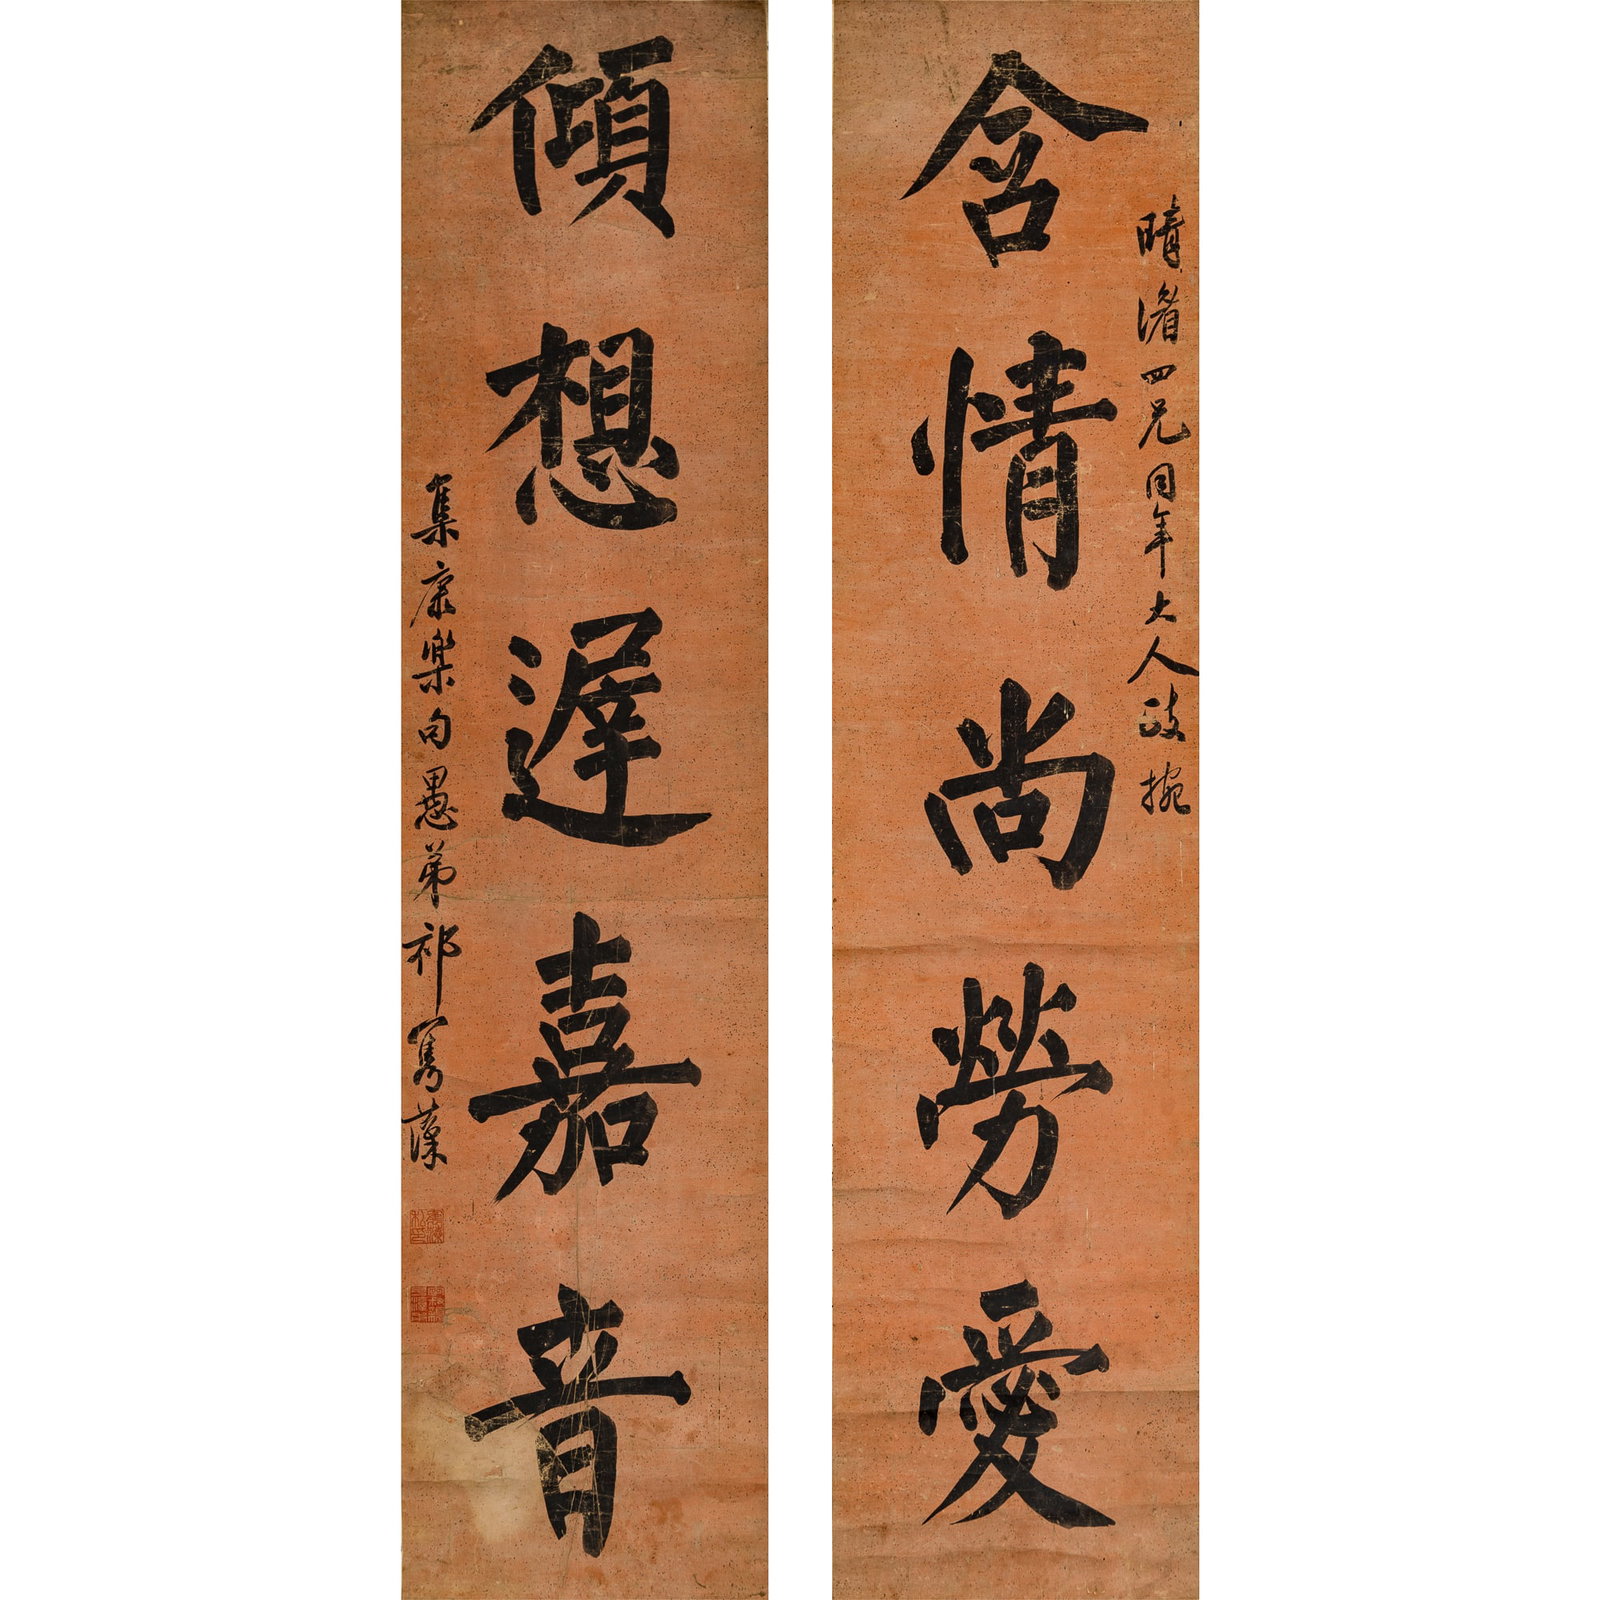 晴渚四兄同年大人政捥
含情尚勞愛
傾想遲嘉音
集康樂句愚弟祁寯藻